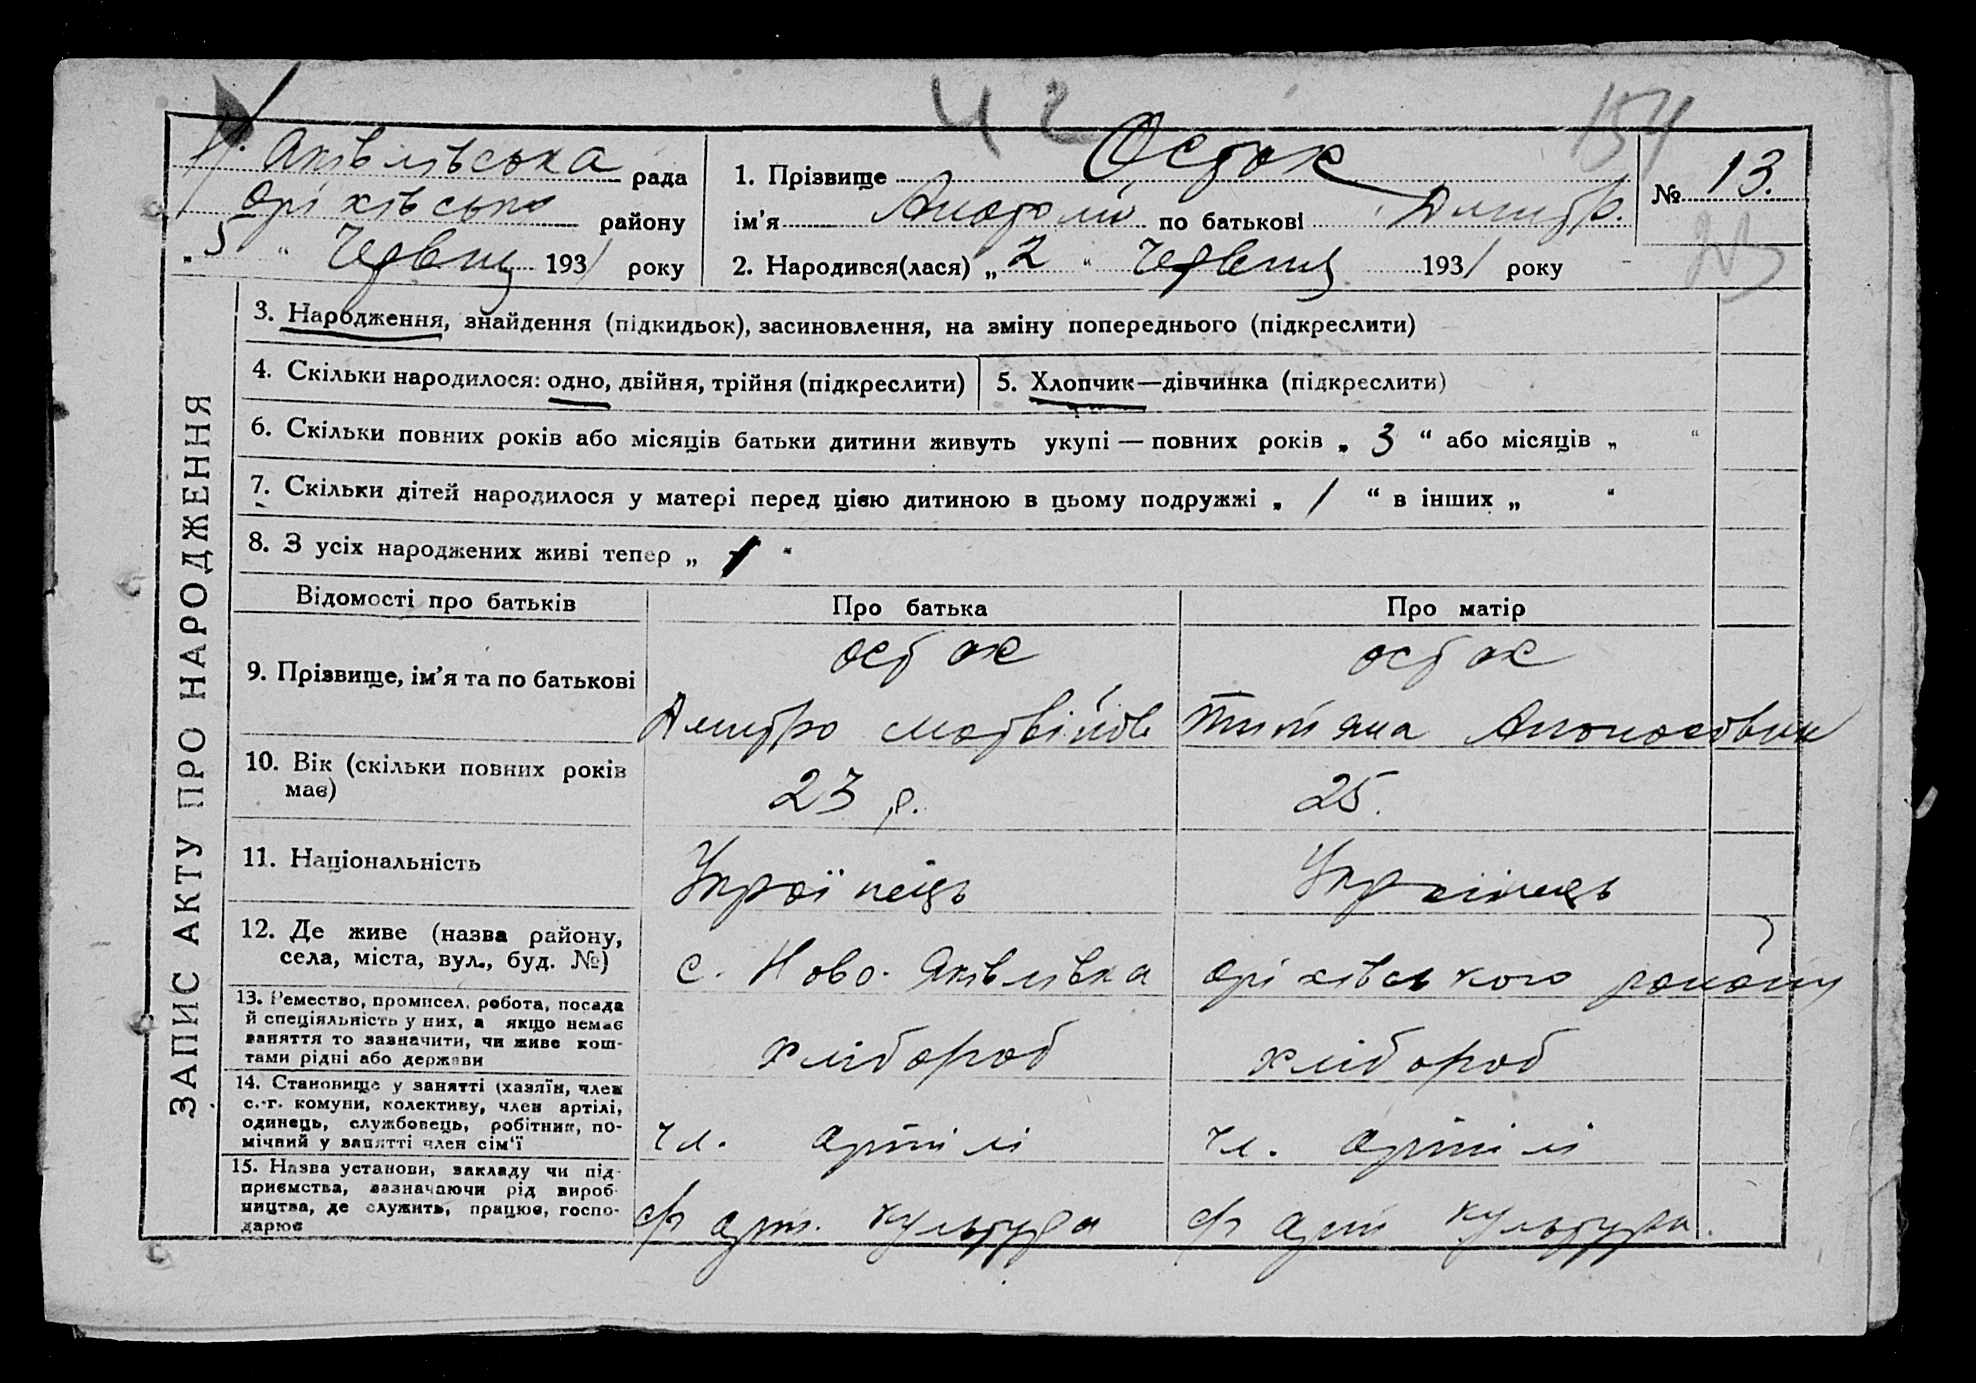 42
154
Н. Яківлівська рада
Оріхівська району
„5“ Червня 1931 року
1. Прізвище Остак
ім’я Анатолій по батькові Дмитр.
2. Народився(лася) „2“ Червня 1931 року
№ 13.
ЗАПИС АКТУ ПРО НАРОДЖЕННЯ
3. Народження, знайдення (підкидьок), засиновлення, на зміну попереднього (підкреслити)
4. Скільки народилося: одно, двійня, трійня (підкреслити)
5. Хлопчик—дівчинка (підкреслити)
6. Скільки повних років або місяців батьки дитини живуть укупі — повних років „ 3 “ або місяців „ “
7. Скільки дітей народилося у матері перед цією дитиною в цьому подружжі „ 1 “ в інших „ “
8. З усіх народжених живі тепер „ 1 “
Відомості про батьків
Про батька
Про матір
9. Прізвище, ім’я та по батькові
Остак
Дмитро Матвійов
Остак
10. Вік (скільки повних років
має)
23 р.
25.
11. Національність
Україпець
Українець
12. Де живе (назва району,
села, міста, вул., буд. №)
с. Ново-Яківлівка
Оріхівського району
13. Ремество, промисел, робота, посада
й спеціяльність у них, а якщо немає
заняття то зазначити, чи живе кош-
тами рідні або держави
хлібороб
хлібороб
14. Становище у занятті (хазяїн, член
с.-г. комуни, колективу, член артілі,
одинець, службовець, робітник, по-
мічний у занятті член сім’ї
чл. артілі
чл. артілі
15. Назва установи, закладу чи під-
приємства, зазначаючи рід вироб-
ництва, де служить, працює, госпо-
дарює
арт. культура
арт культура.